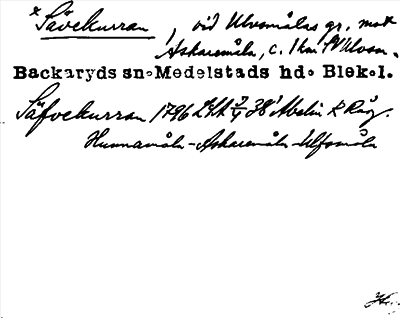 × Sävekurran, vid Ulvsmålas gr. mot
Askaremåla, c. 1 km SV Ulvsm.
Backaryds sn. Medelstads hd. Blek.l.
Säfvekurran 1796 LSA 38 Abelin & Råg.
Hunnamåla - Askaremåla Ulfsmåla